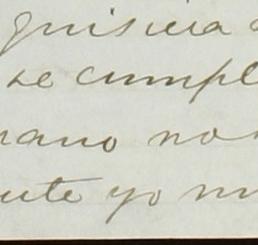 quisiera
se cumpl
mano no
ute yo m